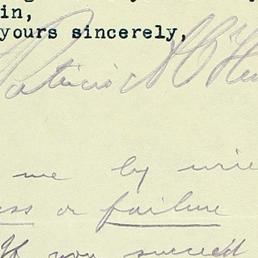 in,
yours sincerely,
Patricio A O'He
me by wire
ess or failure
If you succeed